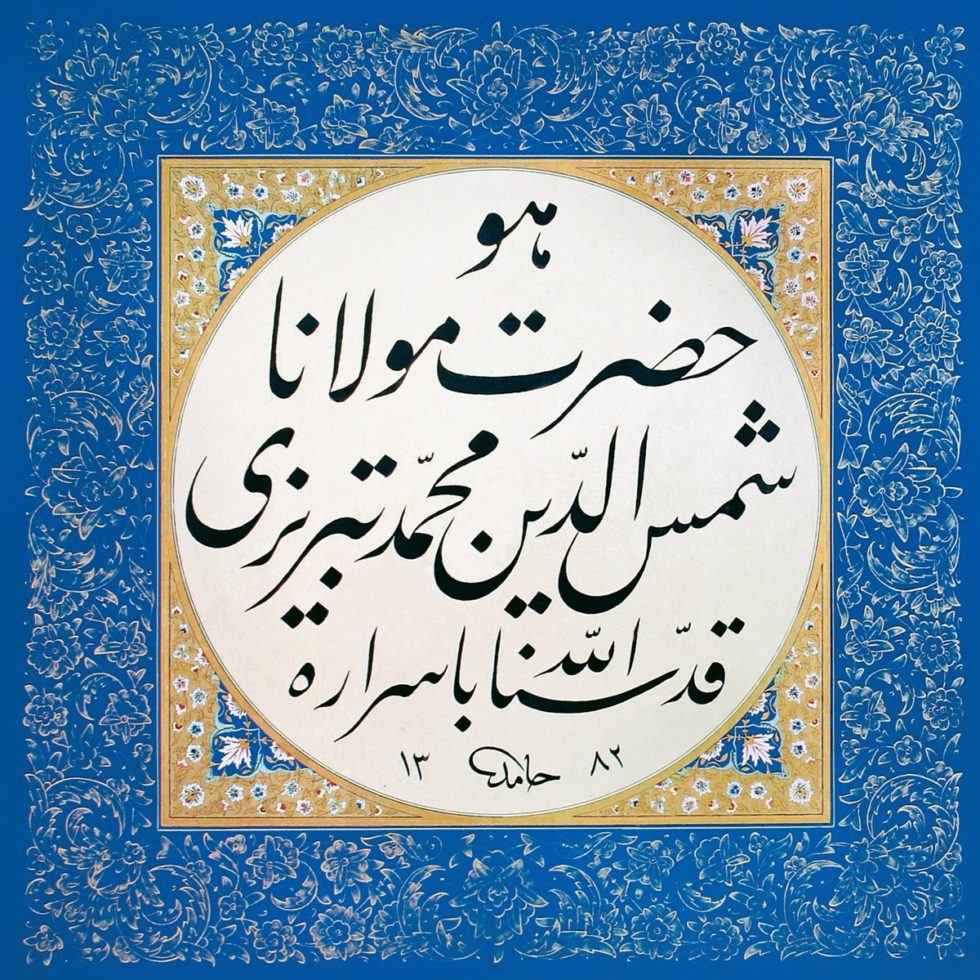 هو
حضرت مولانا
شمس الدّین محمّد تبریزی
قدّسنا الله باسراره
١٣ حامد ٨٢